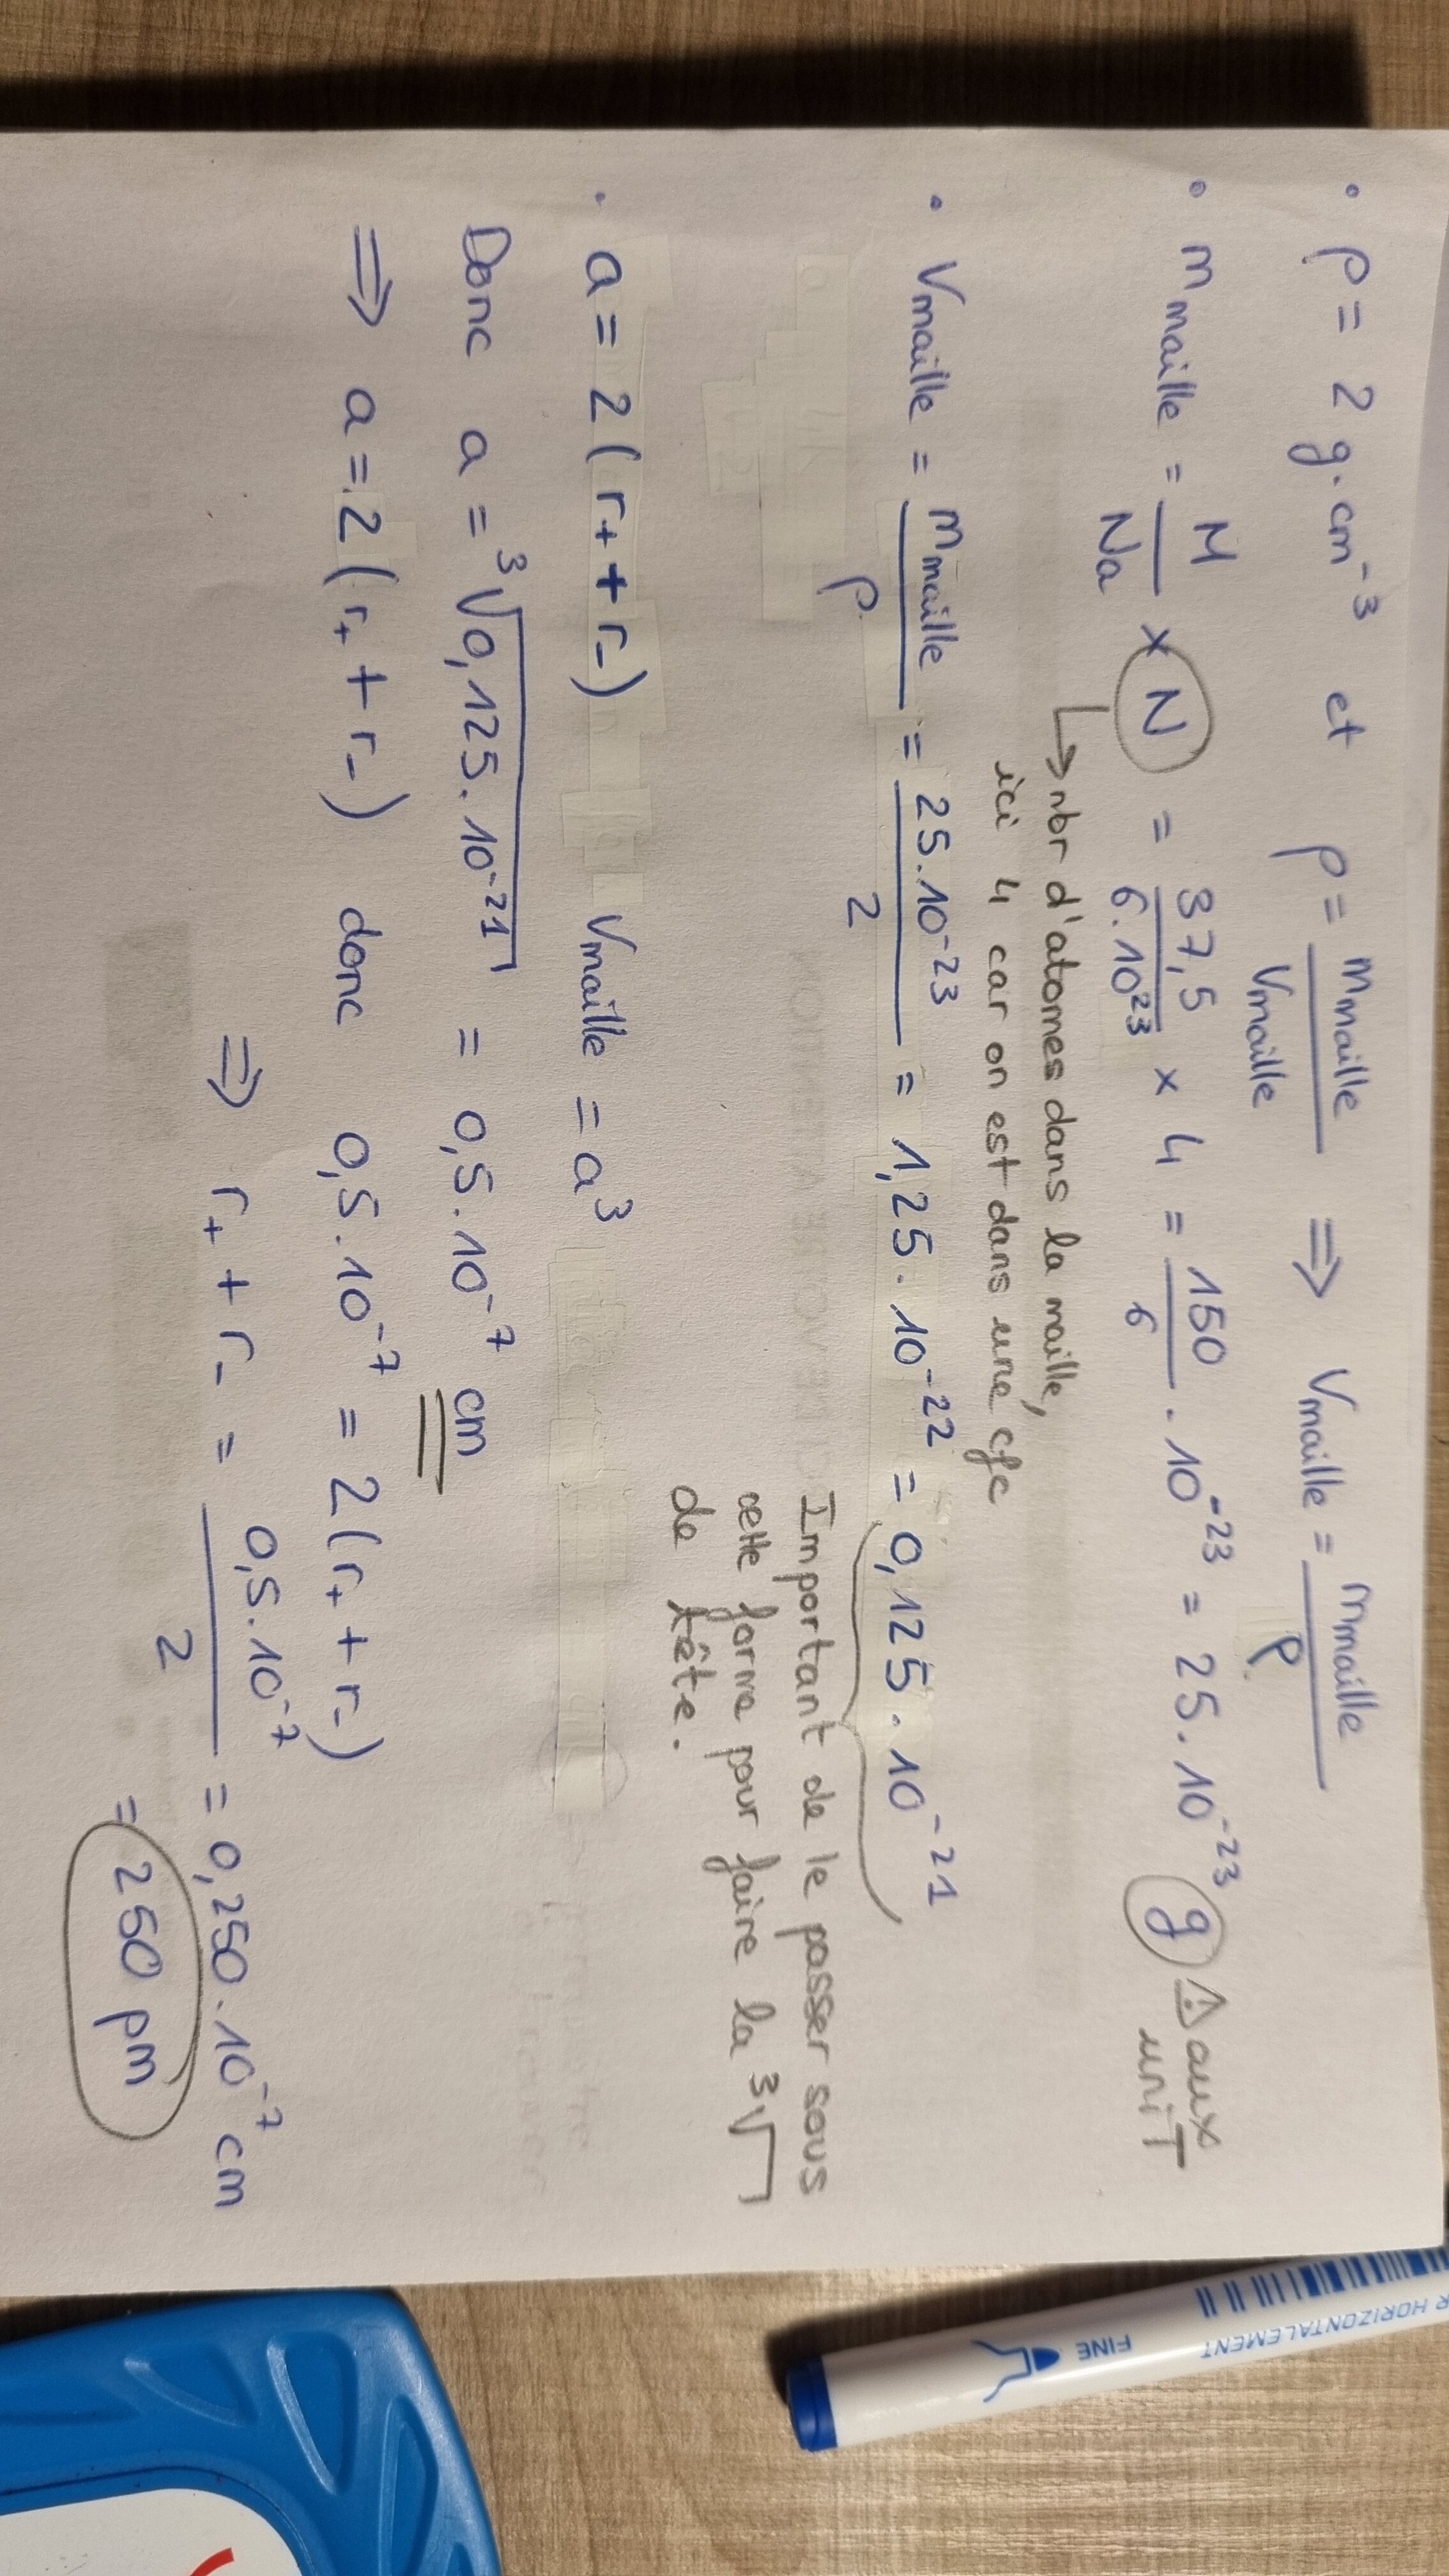 • ρ = 2 g.cm⁻³ et ρ = mmaille / Vmaille ⇒ Vmaille = mmaille / ρ
• mmaille = M / Na × N = 37,5 / 6.10²³ × 4 = 150 / 6 . 10⁻²³ = 25.10⁻²³ g ⚠ aux
uniT
↳ nbr d'atomes dans la maille,
ici 4 car on est dans une cfc
• Vmaille = mmaille / ρ = 25.10⁻²³ / 2 = 1,25.10⁻²² = 0,125.10⁻²¹
Important de le passer sous
cette forme pour faire la ³√
de tête.
• a = 2(r₊ + r₋) Vmaille = a³
Donc a = ³√0,125.10⁻²¹ = 0,5.10⁻⁷ cm
⇒ a = 2(r₊ + r₋) donc 0,5.10⁻⁷ = 2(r₊ + r₋)
⇒ r₊ + r₋ = 0,5.10⁻⁷ / 2 = 0,250.10⁻⁷ cm
= 250 pm
R HORIZONTALEMENT
FINE